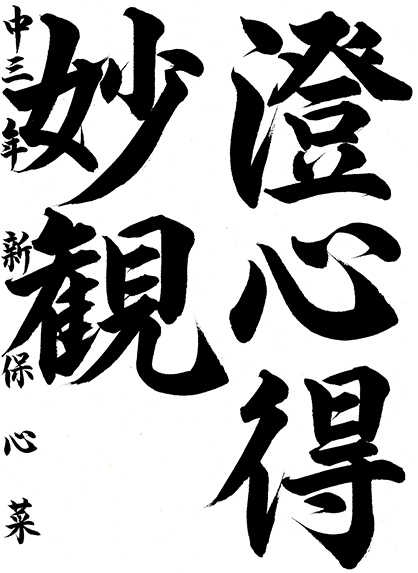 澄心得
妙観
中三年 新保心菜